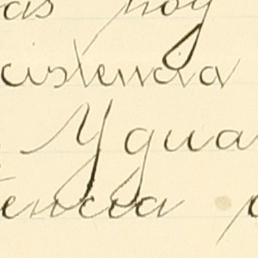 as hoy
cistencia
Ygua
tencia